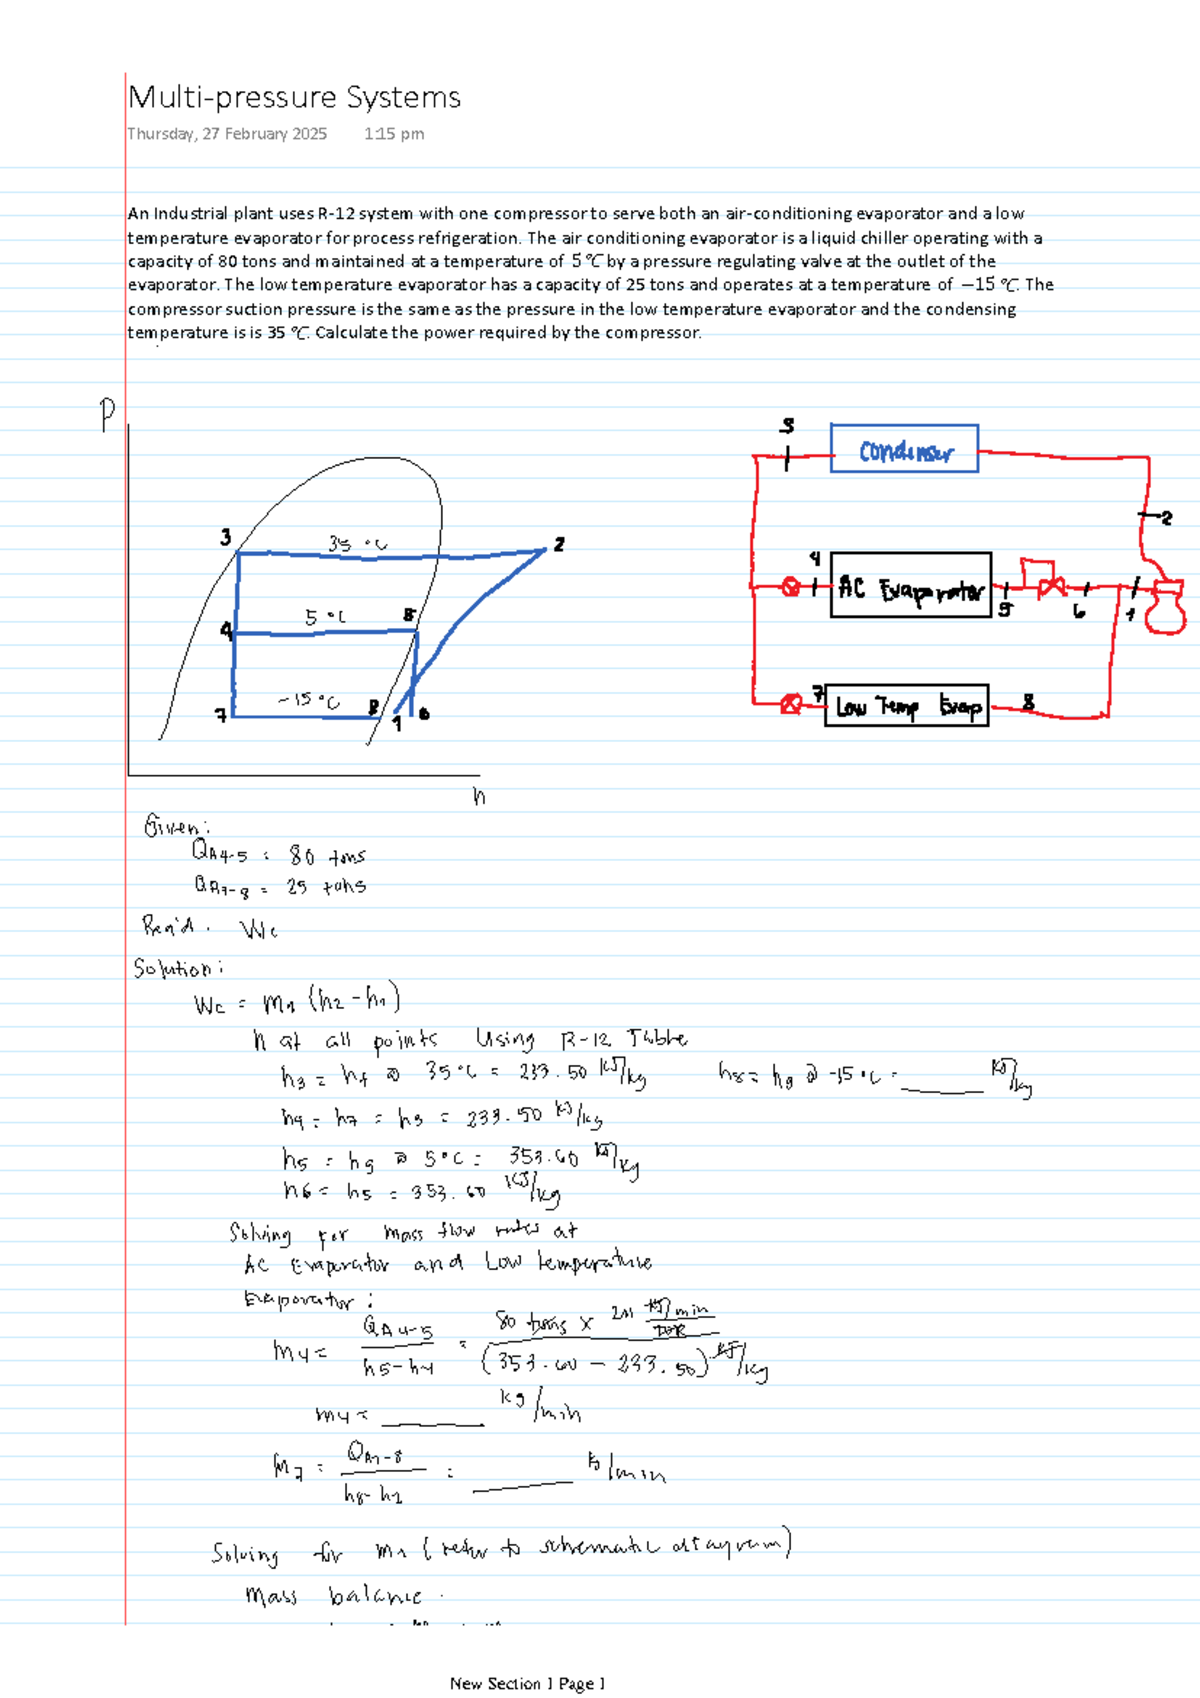 Multi-pressure Systems
Thursday, 27 February 2025 1:15 pm
An Industrial plant uses R-12 system with one compressor to serve both an air-conditioning evaporator and a low
temperature evaporator for process refrigeration. The air conditioning evaporator is a liquid chiller operating with a
capacity of 80 tons and maintained at a temperature of 5 ℃ by a pressure regulating valve at the outlet of the
evaporator. The low temperature evaporator has a capacity of 25 tons and operates at a temperature of −15 ℃. The
compressor suction pressure is the same as the pressure in the low temperature evaporator and the condensing
temperature is is 35 ℃. Calculate the power required by the compressor.
P
3 35 °C 2
4 5 °C 5
7 -15 °C 8 1 6
h
3 Condenser
2
4 AC Evaporator 5 6 1
7 Low Temp Evap 8
Given:
QA4-5 = 80 tons
QA7-8 = 25 tons
Req'd. Wc
Solution:
Wc = m1 (h2 - h1)
h at all points Using R-12 Table
h3 = hf @ 35°C = 233.50 KJ/kg h8 = hg @ -15°C = ____ KJ/kg
h4 = h7 = h3 = 233.50 KJ/kg
h5 = hg @ 5°C = 353.60 KJ/kg
h6 = h5 = 353.60 KJ/kg
Solving for mass flow rates at
AC Evaporator and Low temperature
Evaporator:
m4 = QA4-5 / h5-h4 = 80 tons x 211 KJ/min / TOR / (353.60 - 233.50) KJ/kg
m4 = ____ kg/min
m7 = QA7-8 / h8-h7 = ____ kg/min
Solving for m1 (refer to schematic diagram)
Mass balance.
New Section 1 Page 1